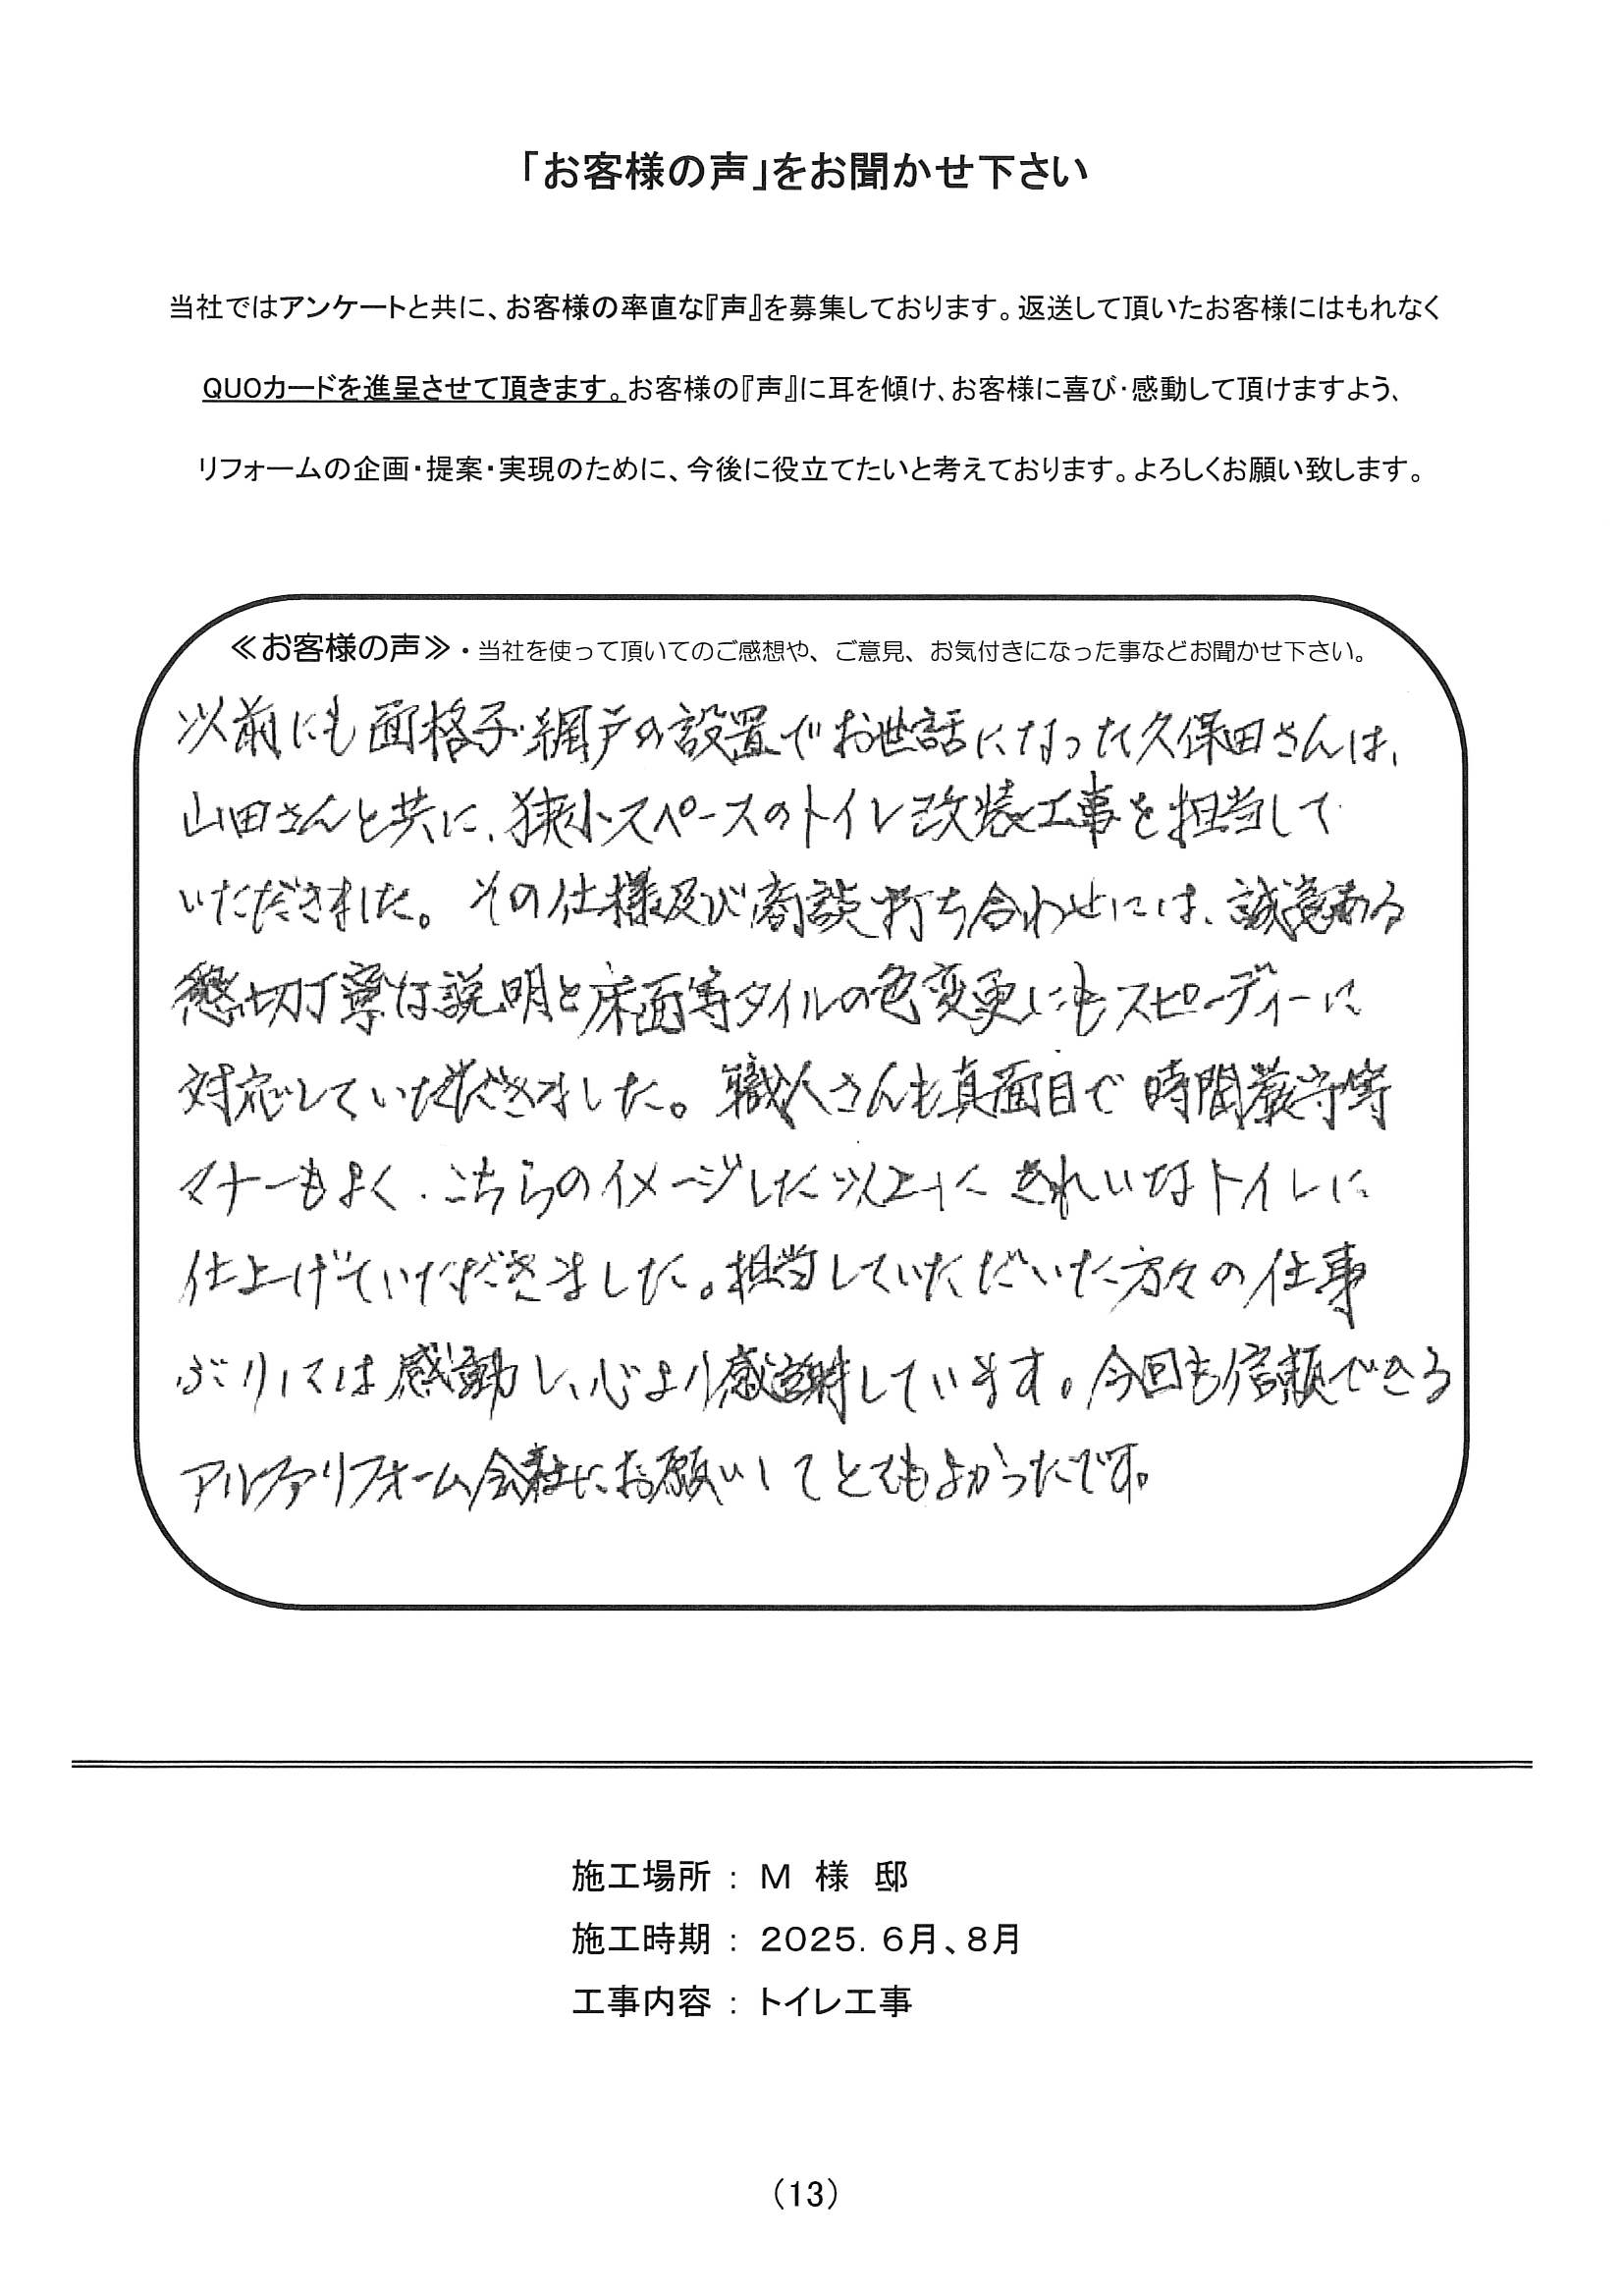 「お客様の声」をお聞かせ下さい
当社ではアンケートと共に、お客様の率直な『声』を募集しております。返送して頂いたお客様にはもれなく
QUOカードを進呈させて頂きます。お客様の『声』に耳を傾け、お客様に喜び・感動して頂けますよう、
リフォームの企画・提案・実現のために、今後に役立てたいと考えております。よろしくお願い致します。
≪お客様の声≫・当社を使って頂いてのご感想や、ご意見、お気付きになった事などお聞かせ下さい。
以前にも面格子・網戸の設置でお世話になった久保田さんは、
山田さんと共に、狭小スペースのトイレ改装工事を担当して
いただきました。その仕様及び商談・打ち合わせには、誠意ある
懇切丁寧な説明と床面等タイルの色変更にもスピーディーに
対応していただきました。職人さんも真面目で時間厳守等
マナーもよく、こちらのイメージした以上にきれいなトイレに
仕上げていただきました。担当していただいた方々の仕事
ぶりには感動し、心より感謝しています。今回も信頼できる
アルファリフォーム会社にお願いしてとてもよかったです。
施工場所 : M 様 邸
施工時期 : 2025. 6月、8月
工事内容 : トイレ工事
(13)